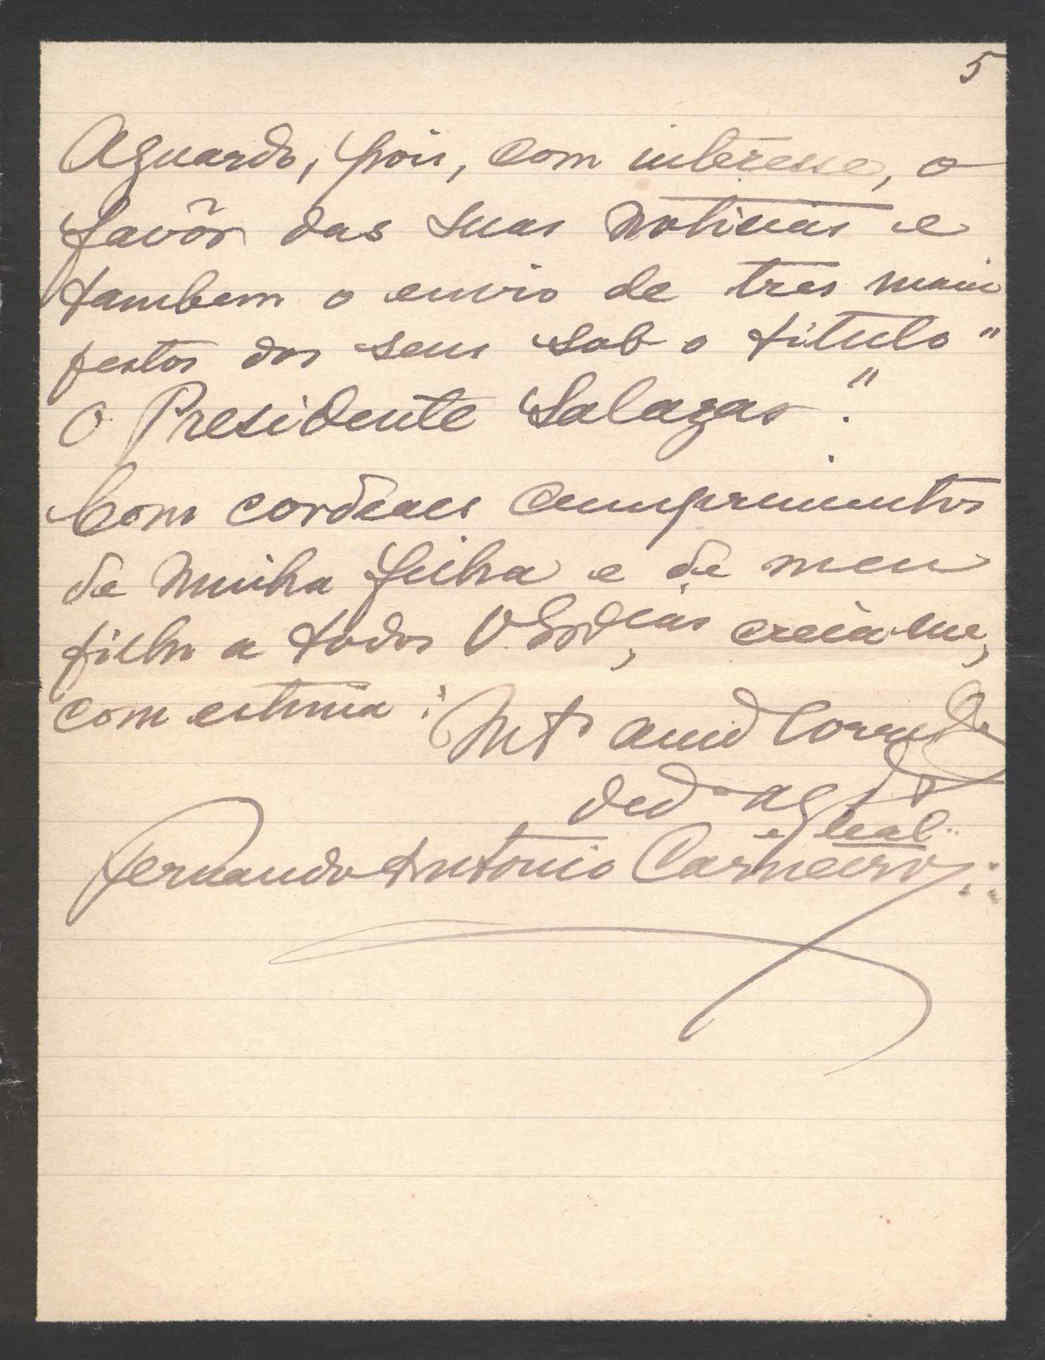 5
Aguardo, pois, com interesse, o
favôr das suas noticias e
tambem o envio de tres mani
festos dos seus sob o titulo "
O Presidente Salazar".
Com cordeaes cumprimentos
de minha filha e de meu
filho a todos V. creia-me,
com estima: Mt.º am.º
ded.º
e leal..
Fernando Antonio Carneiro